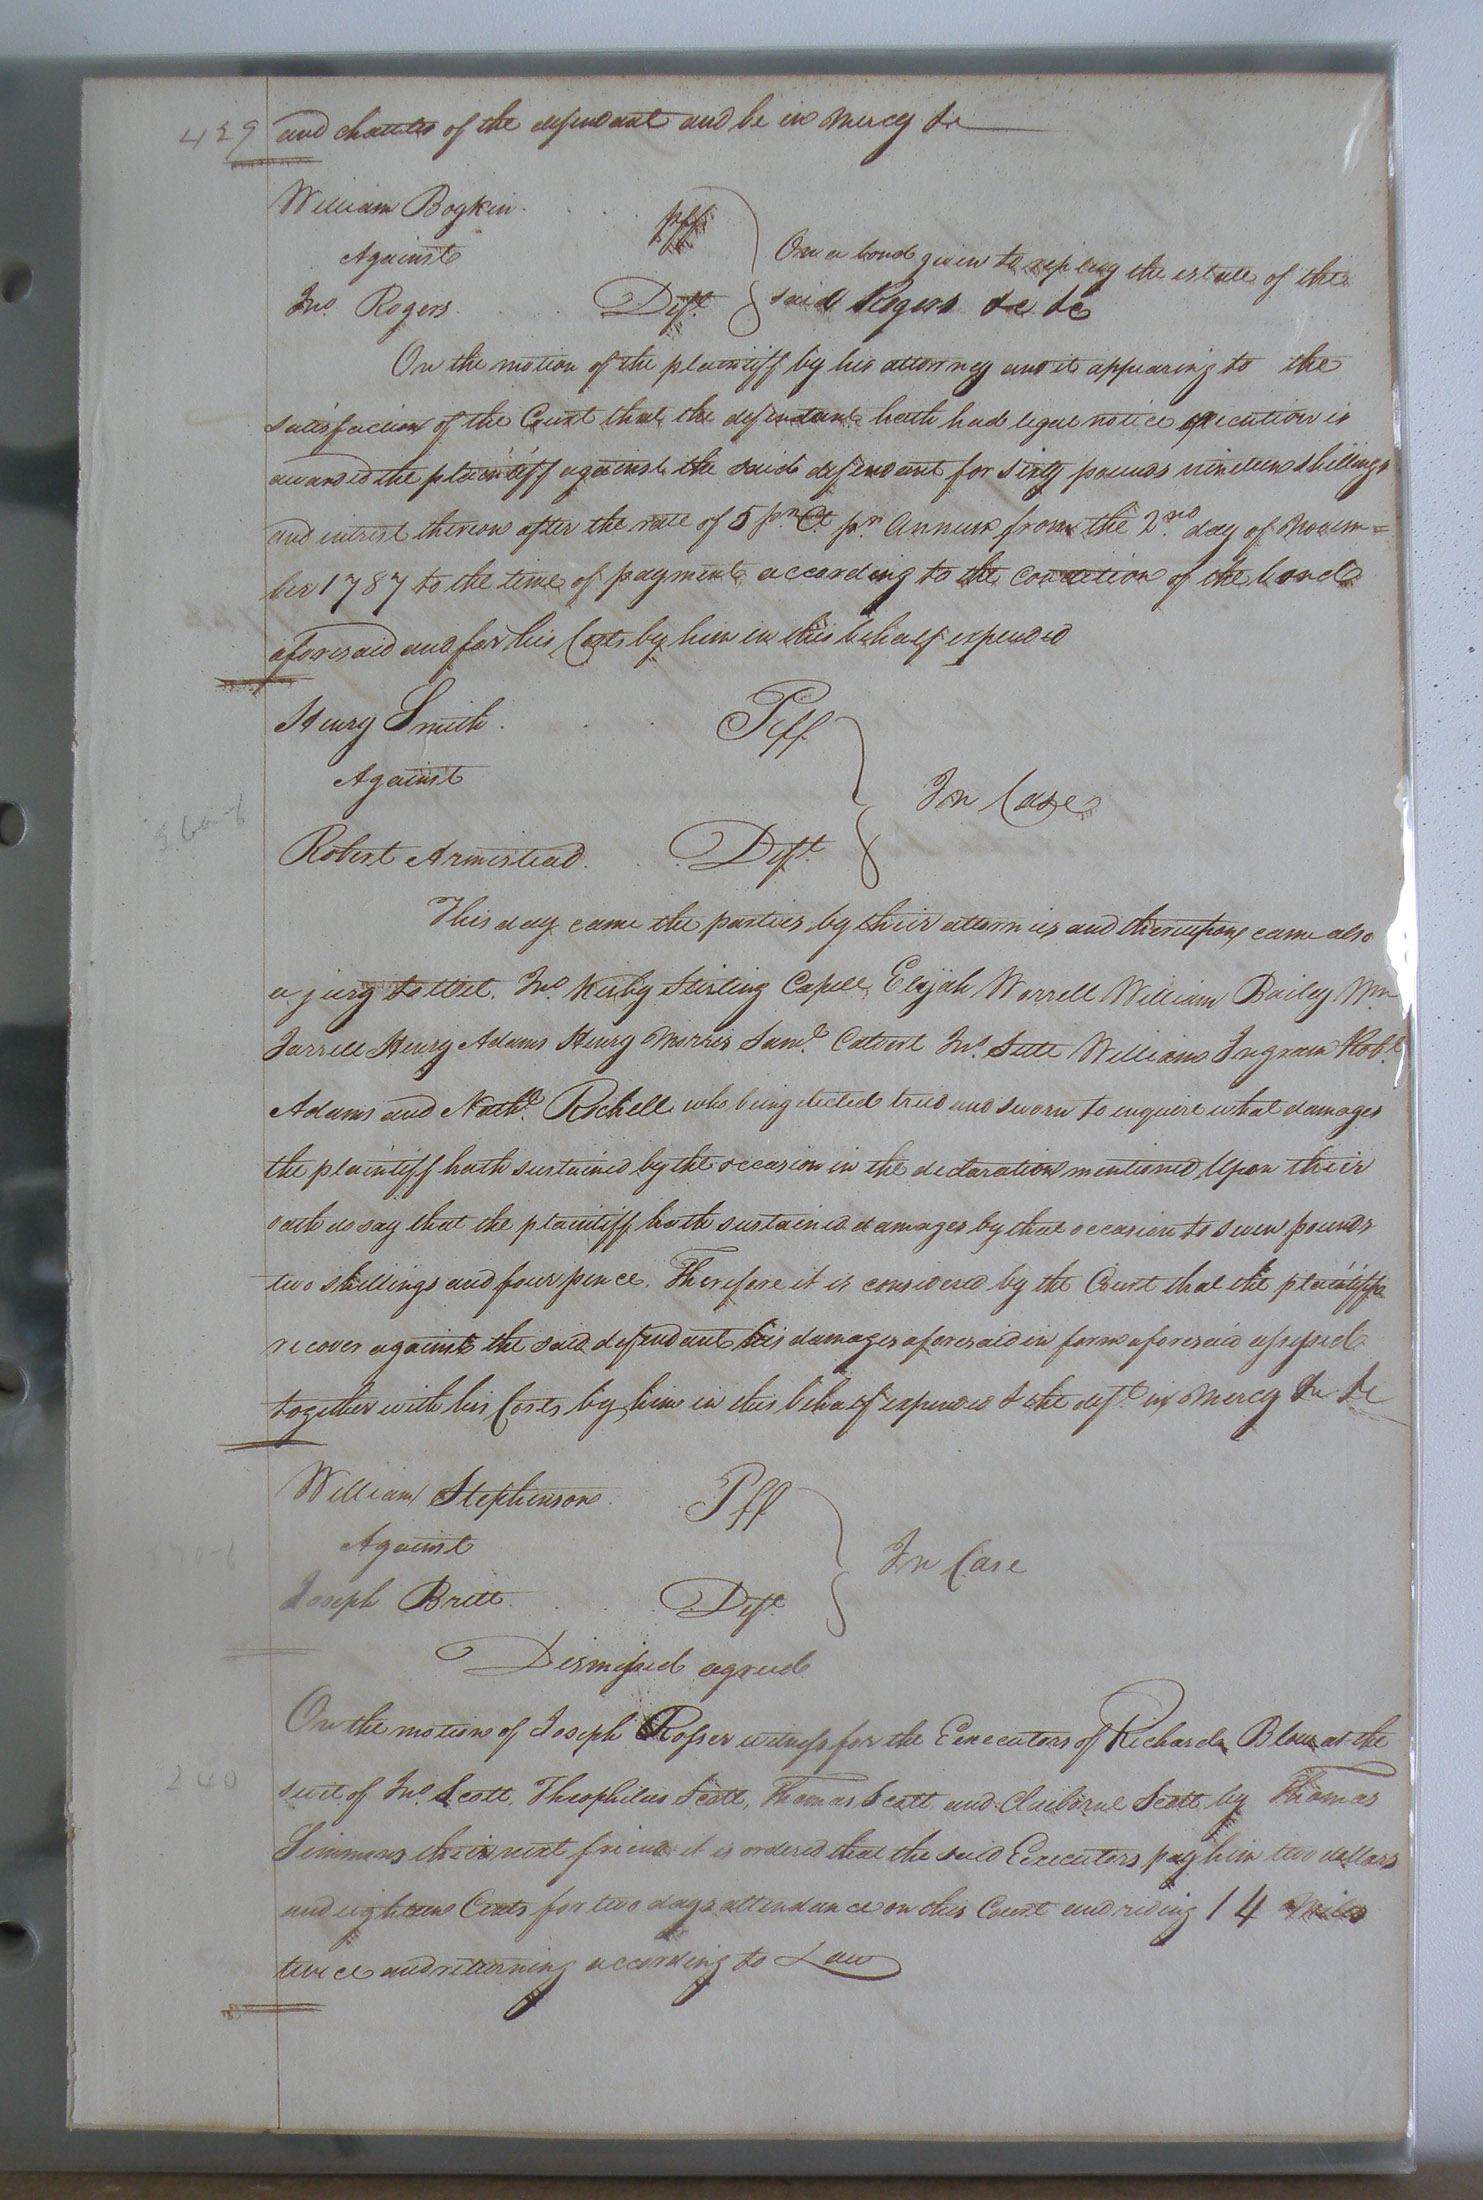 429 and chattels of the defendant and be in Mercy &c
William Boykin Pff
Against
On a bond given to replevy the estate of the
Jno. Rogers Deft. said Rogers &c &c
On the motion of the plaintiff by his attorney and it appearing to the
satisfaction of the Court that the defendant hath had legal notice execution is
awarded the plaintiff against the said defendant for Sixty pounds nineteen shillings
and interest thereon after the rate of 5 pr. Ct. pr. Annum from the 2nd. day of Novem=
ber 1787 to the time of payment according to the condition of the bond
aforesaid and for his Costs by him in this behalf expended
Henry Smith Plff
Against
In Case
Robert Armistead Deft.
This day came the parties by their attornies and thereupon came also
a jury to Wit. Jno. Kirby Stirling Capell Elijah Worrell William Bailey Wm
Jarrell Henry Adams Henry Morris Saml. Calvert Jno. Sutt William Ingram Robt.
Adams and Nathl. Rchell who being elected tried and sworn to enquire what damages
the plaintiff hath sustained by the occasion in the declaration mentioned, Upon their
oath do say that the plaintiff hath sustained damages by that occasion to seven pounds
two shillings and four pence. Therefore it is considered by the Court that the plaintiff
recover against the said defendant his damages aforesaid in form aforesaid assessed
together with his Costs by him in this behalf expended & the deft. in Mercy &c &c
William Stephenson Pff
Against
In Case
Joseph Britt Deft.
Dismissed agreed
On the motion of Joseph Rosser witness for the Executors of Richard Blow at the
240 suit of Jno. Scott, Theophilus Scott, Thomas Scott and Claiborne Scott by Thomas
Simmons their next friend it is ordered that the said Executors pay him two dollars
and eighteen Cents for two days attendance on this Court and riding 14 Miles
twice and returning according to Law